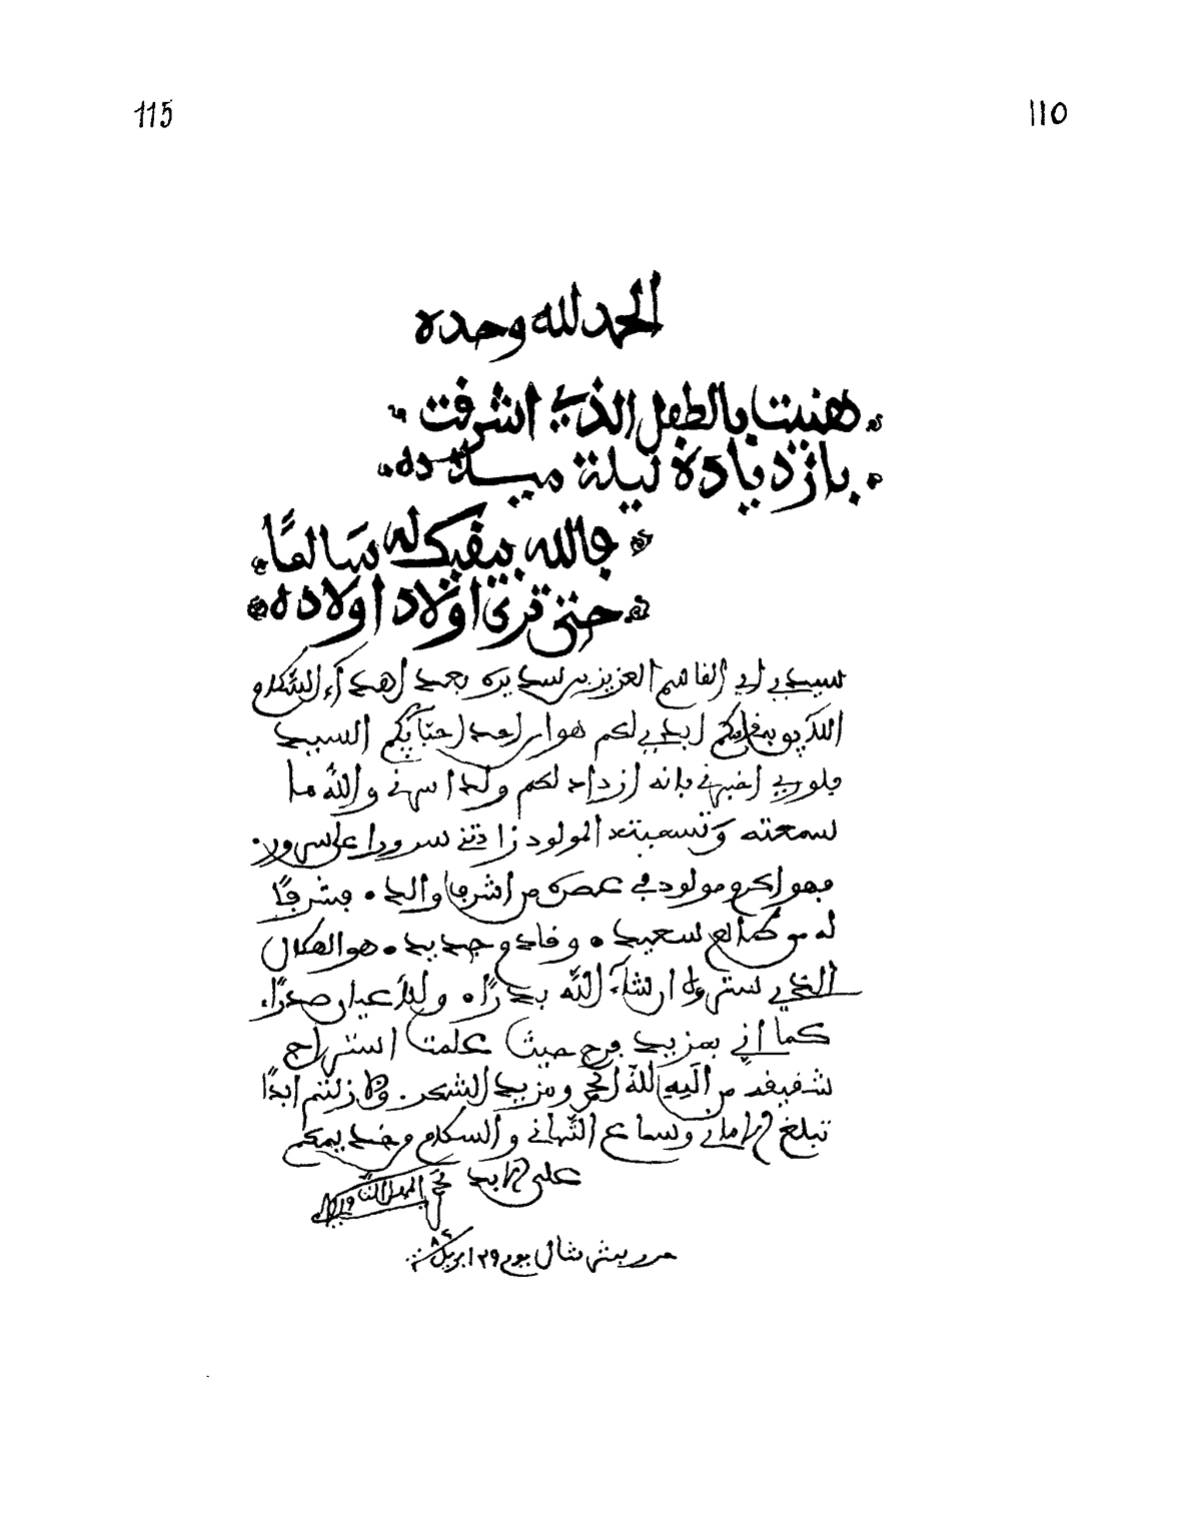 115
110
الحمد لله وحده
هنيت بالطفل الذي اشرقت
بازدياده ليلة ميلاده
فالله يبقيك له سالمًا
حتى ترى اولاد اولاده
سيدي ابي القاسم العزيز بن سديره بعد اهداء السلام
اللايق بمقامكم ابدي لكم هو ان احد احبابكم السيد
بلوري اخبرني بانه ازداد لكم ولدا سرني والله ما
سمعته وتسميته المولود زادتني سرورا على سرور.
فهو اكرم مولود في عصره من اشرف والد. فبشرى
له من طالع سعيد. وقادم جديد. هو الهلال
الذي سترونه ان شاء الله بدرًا. وللأعيان صدرًا.
كما اني بمزيد فرح حيث علمت استراح
شفيقه من اليه لله الحمد ومزيد الشكر. ولا زلتم ابدًا
تبلغ الاماني وسماع التهاني والسلام من خديمكم
علي
حرر ببني شال يوم ٢٩ ابريل